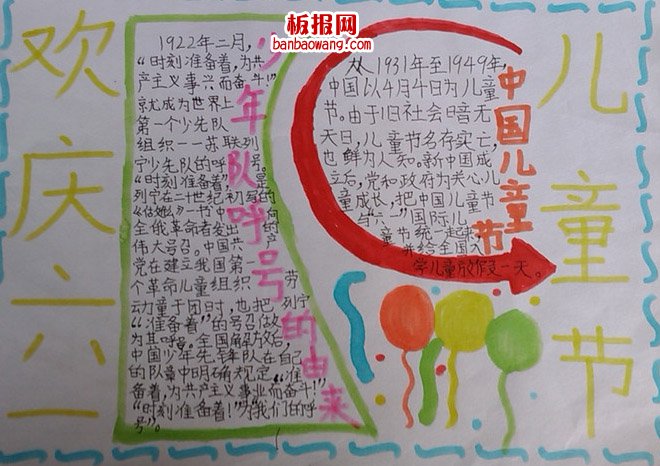 板报网
banbaowang.com
欢庆六一
儿童节
少年队呼号的由来
1922年二月，
“时刻准备着，为共
产主义事兴而奋斗！”
京尤成为世界上
第一个少先队
组织——苏联列
宁少先队的呼号。
“时刻准备着”，是
列宁在二十世纪初写的
《怎么办》一书中向
全俄革命者发出的
伟大号召。中国共产
党在建立我国第一
个革命儿童组织劳
动力童子团时，也把列宁
“准备着”的号召做
为其呼号。全国解放后，
中国少年先锋队在自己
的队章中明确规定“准
备着，为共产主义事业而奋斗！”
“时刻准备着！”为我们的呼
号”。
中国儿童节
从1931年至1949年，
中国以4月4日为儿童
节。由于旧社会暗无
天日，儿童节名存实亡，
也鲜为人知。新中国成
立后，党和政府为关心儿
童成长，把中国儿童节
与“六一”国际儿
童节统一起来，
并给全国入
学儿童放假一天。